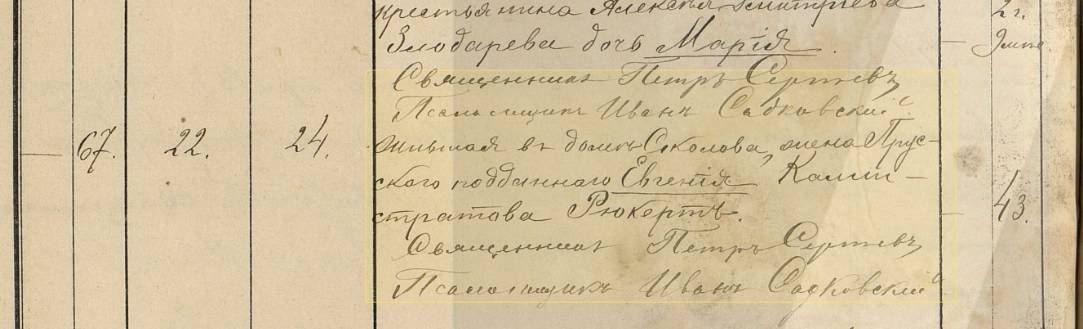 крестьянина Алексѣя Дмитріева
2 г.
Злодарева дочь Марія.
9 мѣс.
Священникъ Петръ Сергіевъ
Псаломщикъ Иванъ Садковскій
67. 22. 24. жившая въ домѣ Соколова, жена Прус-
скаго подданнаго Евгенія Калли-
43.
стратова Рюкертъ.
Священникъ Петръ Сергіевъ
Псаломщикъ Иванъ Садковскій